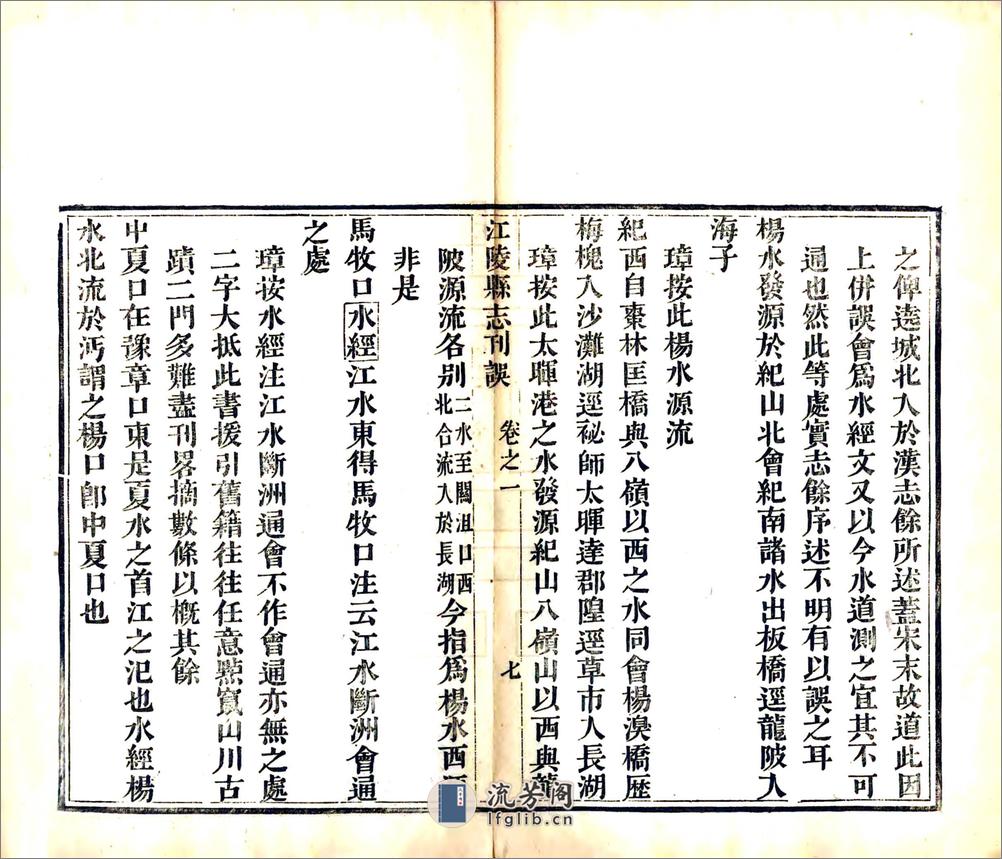 之俾遶城北入於漢志餘所述蓋宋末故道此因
上併誤會爲水經文又以今水道測之宜其不可
通也然此等處實志餘序述不明有以誤之耳
楊水發源於紀山北會紀南諸水出板橋逕龍陂入
海子
璋按此楊水源流
紀西自棗林匡橋與八嶺以西之水同會楊湨橋歷
梅槐入沙灘湖逕祕師太暉達郡隍逕草市入長湖
璋按此太暉港之水發源紀山八嶺山以西與龍
江陵縣志刊誤
卷之一
七
陂源流名別二水至關沮口西
北合流入於長湖今指爲楊水西源
非是
馬牧口水經江水東得馬牧口注云江水斷洲會通
之處
璋按水經注江水斷洲通會不作會通亦無之處
二字大抵此書援引舊籍往往任意點竄山川古
蹟二門多難盡刊畧摘數條以槪其餘
中夏口在豫章口東是夏水之首江之汜也水經楊
水北流於沔謂之楊口卽中夏口也
流芳阁
lfglib.cn